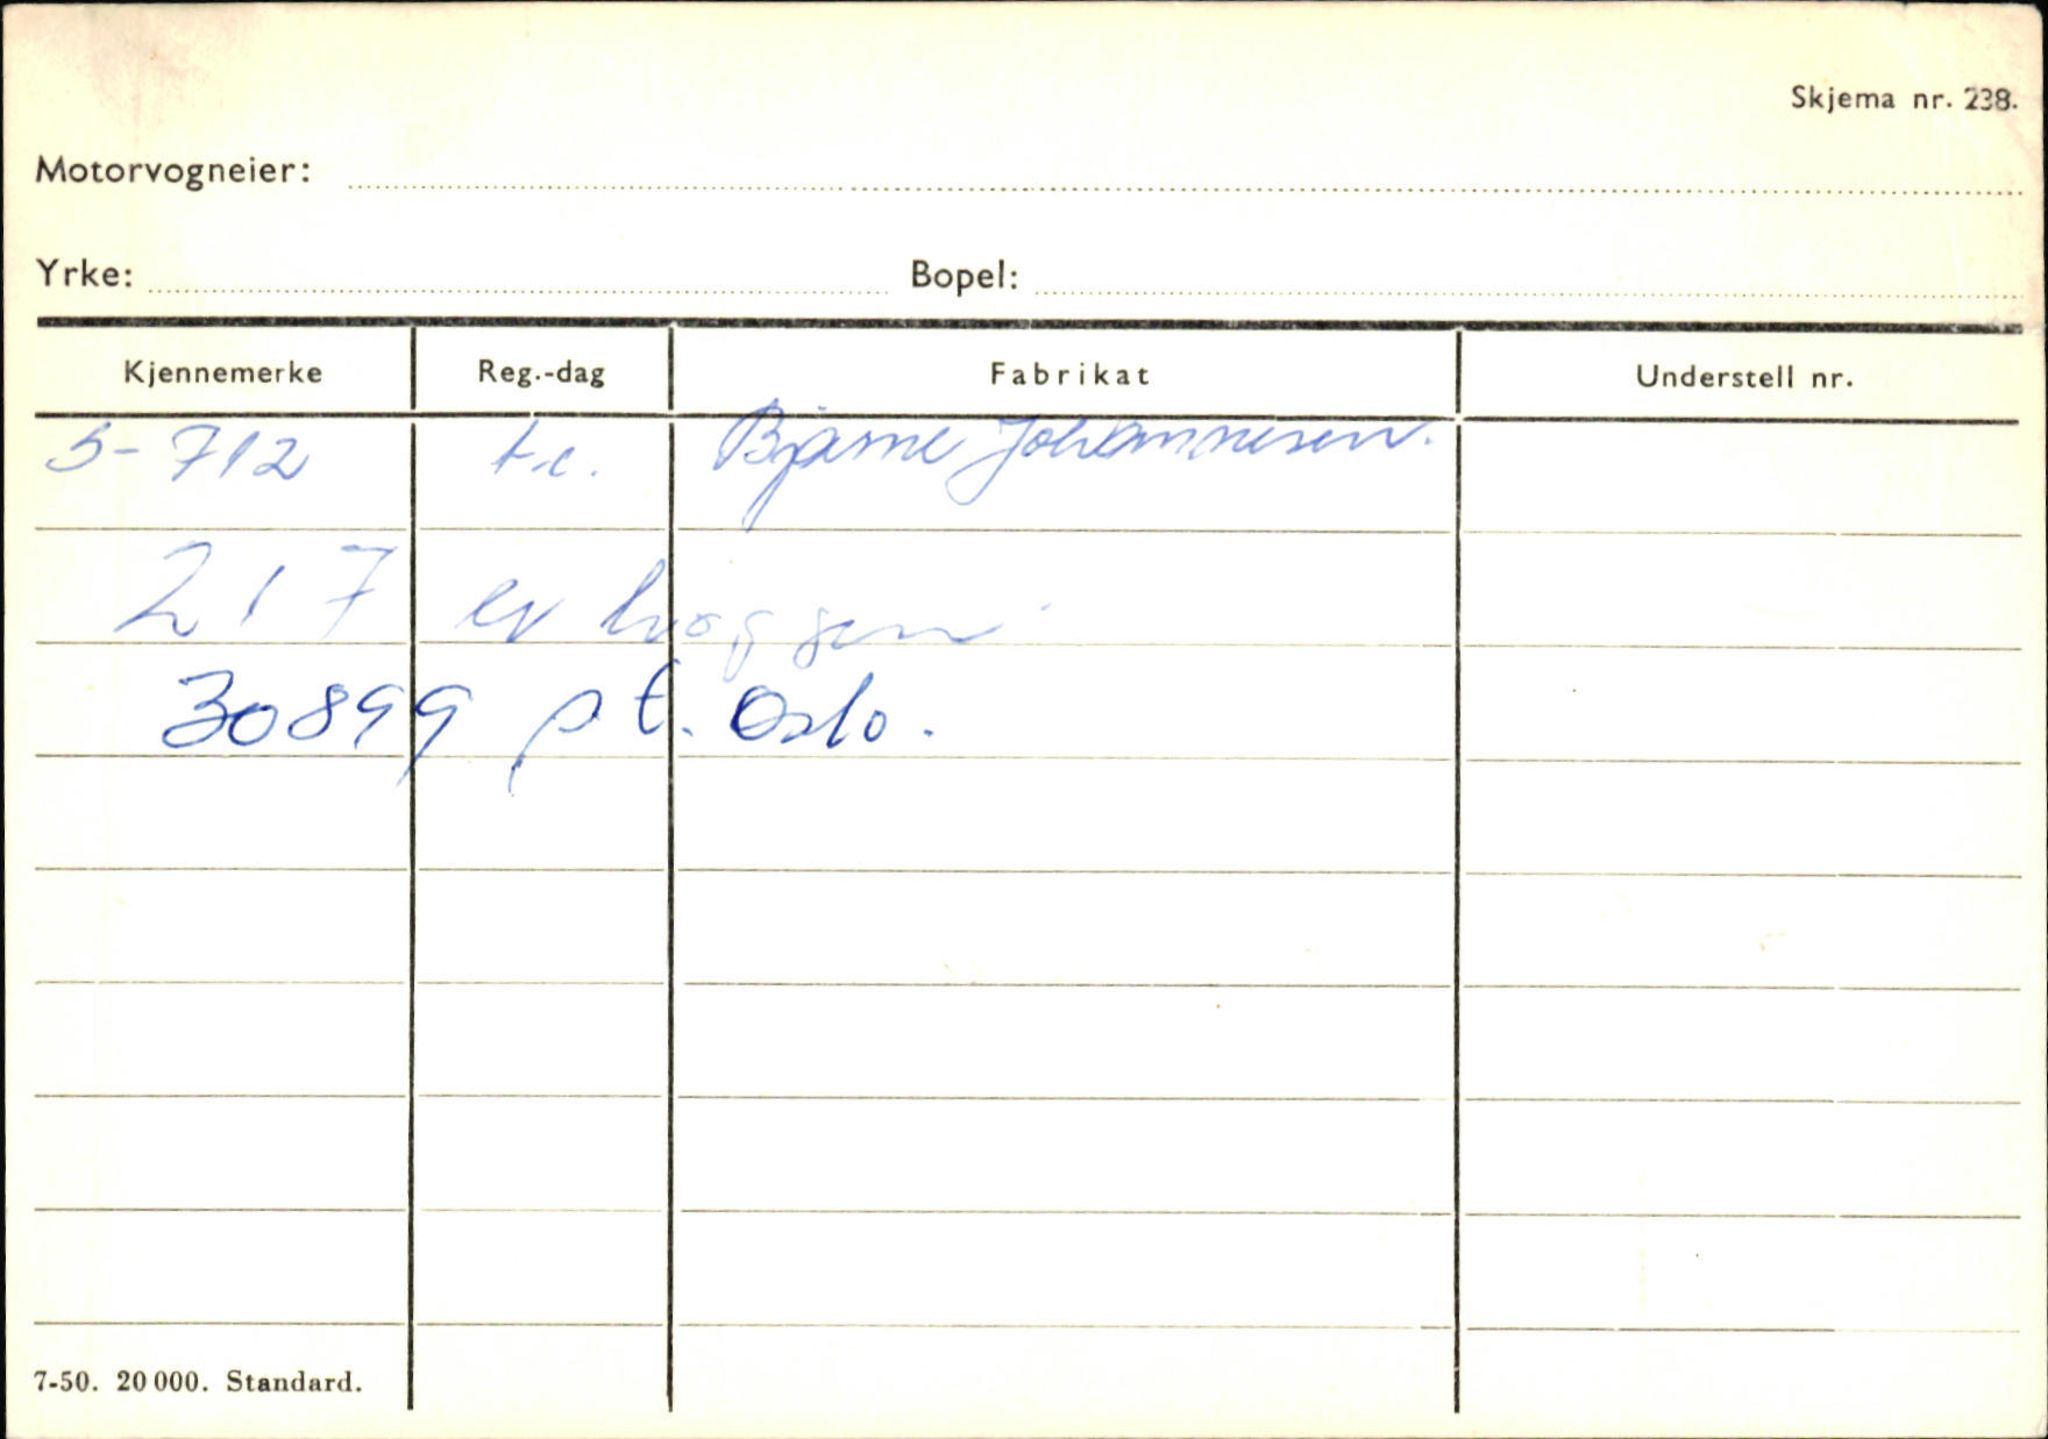 Skjema nr. 238.
Motorvogneier:
Yrke: Bopel:
Kjennemerke Reg.-dag Fabrikat Understell nr.
S-712 t.c. Bjarne Johannesen.
217 er
30899 pt. Oslo.
7-50. 20 000. Standard.